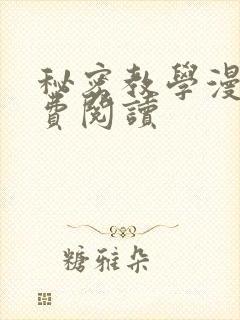 秘密教學漫
費閱讀
糖雅朵